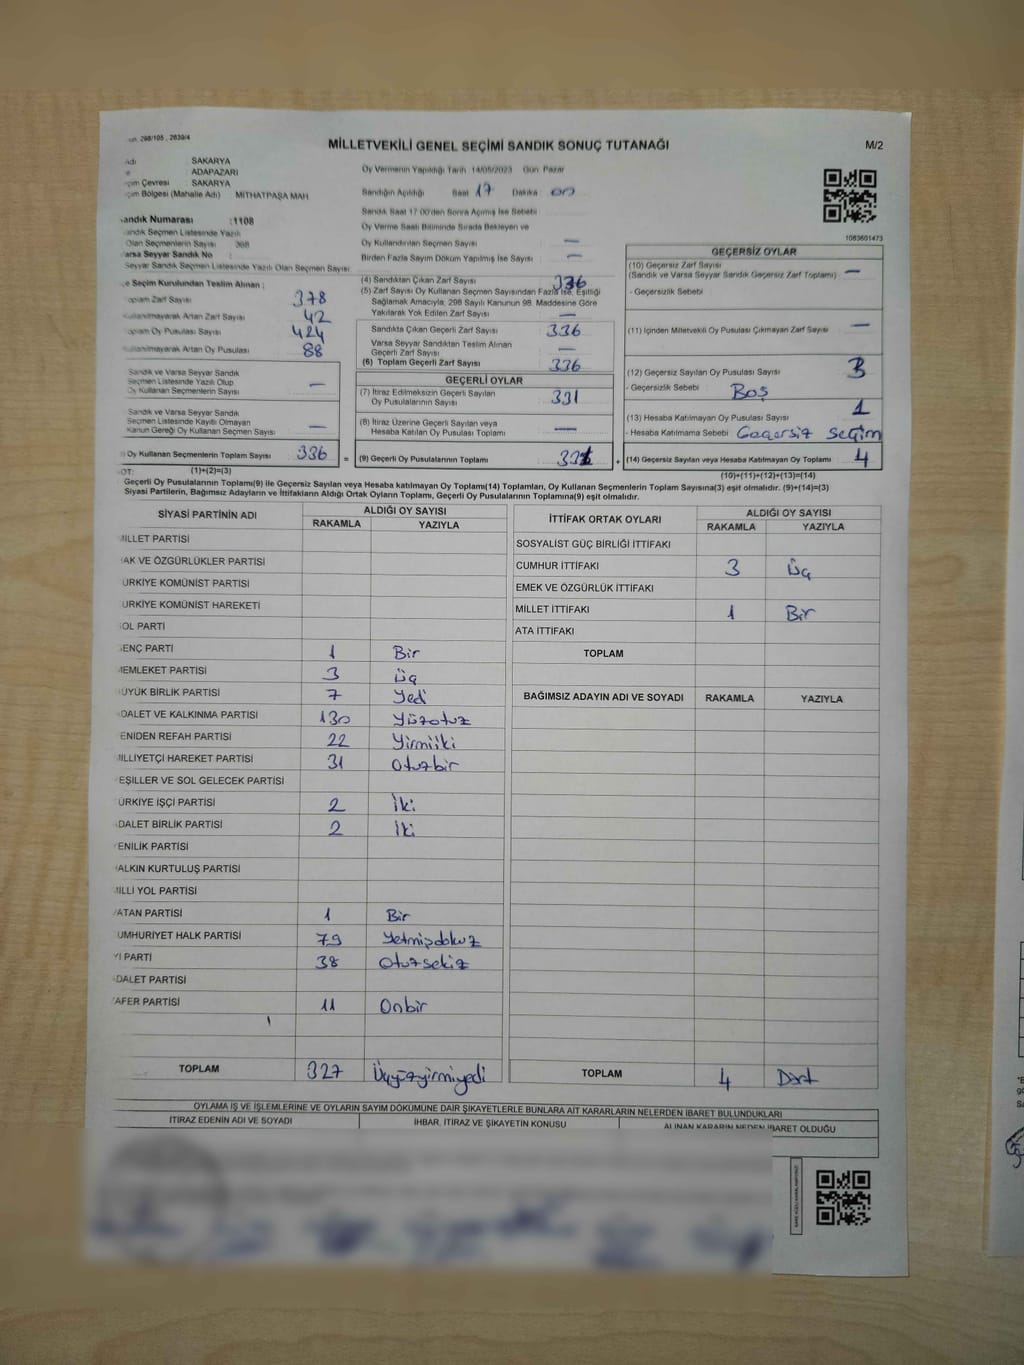 298/105 , 2839/4
MİLLETVEKİLİ GENEL SEÇİMİ SANDIK SONUÇ TUTANAĞI
M/2
SAKARYA
ADAPAZARI
SAKARYA
MİTHATPAŞA MAH
Oy Vermenin Yapıldığı Tarih 14/05/2023 Gün Pazar
Sandığın Açıldığı Saat 17 Dakika 00
Sandık Saat 17:00'den Sonra Açılmış İse Sebebi
Oy Verme Saati Bitiminde Sırada Bekleyen ve
Oy Kullandırılan Seçmen Sayısı : —
Birden Fazla Sayım Döküm Yapılmış İse Sayısı : —
andık Numarası :1108
andık Seçmen Listesinde Yazılı
Olan Seçmenlerin Sayısı : 368
arsa Seyyar Sandık No :
Seyyar Sandık Seçmen Listesinde Yazılı Olan Seçmen Sayısı:
e Seçim Kurulundan Teslim Alınan ;
oplam Zarf Sayısı : 378
ullanılmayarak Artan Zarf Sayısı : 42
oplam Oy Pusulası Sayısı : 424
ullanılmayarak Artan Oy Pusulası : 88
Sandık ve Varsa Seyyar Sandık
Seçmen Listesinde Yazılı Olup
Oy Kullanan Seçmenlerin Sayısı : —
Sandık ve Varsa Seyyar Sandık
Seçmen Listesinde Kayıtlı Olmayan
Kanun Gereği Oy Kullanan Seçmen Sayısı : —
Oy Kullanan Seçmenlerin Toplam Sayısı : 336
(1)+(2)=(3)
(4) Sandıktan Çıkan Zarf Sayısı : 336
(5) Zarf Sayısı Oy Kullanan Seçmen Sayısından Fazla İse, Eşitliği
Sağlamak Amacıyla, 298 Sayılı Kanunun 98. Maddesine Göre
Yakılarak Yok Edilen Zarf Sayısı : —
Sandıkta Çıkan Geçerli Zarf Sayısı : 336
Varsa Seyyar Sandıktan Teslim Alınan
Geçerli Zarf Sayısı : —
(6) Toplam Geçerli Zarf Sayısı : 336
GEÇERLİ OYLAR
(7) İtiraz Edilmeksizin Geçerli Sayılan
Oy Pusulalarının Sayısı : 331
(8) İtiraz Üzerine Geçerli Sayılan veya
Hesaba Katılan Oy Pusulası Toplamı : —
= (9) Geçerli Oy Pusulalarının Toplamı : 331 +
GEÇERSİZ OYLAR
1083601473
(10) Geçersiz Zarf Sayısı
(Sandık ve Varsa Seyyar Sandık Geçersiz Zarf Toplamı) : —
- Geçersizlik Sebebi
(11) İçinden Milletvekili Oy Pusulası Çıkmayan Zarf Sayısı : —
(12) Geçersiz Sayılan Oy Pusulası Sayısı : 3
- Geçersizlik Sebebi : Boş
(13) Hesaba Katılmayan Oy Pusulası Sayısı : 1
- Hesaba Katılmama Sebebi Geçersiz Seçim
(14) Geçersiz Sayılan veya Hesaba Katılmayan Oy Toplamı : 4
(10)+(11)+(12)+(13)=(14)
OT:
Geçerli Oy Pusulalarının Toplamı(9) ile Geçersiz Sayılan veya Hesaba katılmayan Oy Toplam(14) Toplamları, Oy Kullanan Seçmenlerin Toplam Sayısına(3) eşit olmalıdır. (9)+(14)=(3)
Siyasi Partilerin, Bağımsız Adayların ve İttifakların Aldığı Ortak Oyların Toplamı, Geçerli Oy Pusulalarının Toplamına(9) eşit olmalıdır.
SİYASİ PARTİNİN ADI ALDIĞI OY SAYISI
RAKAMLA YAZIYLA
MİLLET PARTİSİ
AK VE ÖZGÜRLÜKLER PARTİSİ
ÜRKİYE KOMÜNİST PARTİSİ
ÜRKİYE KOMÜNİST HAREKETİ
OL PARTİ
ENÇ PARTİ 1 Bir
MEMLEKET PARTİSİ 3 Üç
ÜYÜK BİRLİK PARTİSİ 7 Yedi
DALET VE KALKINMA PARTİSİ 130 Yüzotuz
ENİDEN REFAH PARTİSİ 22 Yirmiiki
İLLİYETÇİ HAREKET PARTİSİ 31 Otuzbir
EŞİLLER VE SOL GELECEK PARTİSİ
ÜRKİYE İŞÇİ PARTİSİ 2 İki
DALET BİRLİK PARTİSİ 2 İki
ENİLİK PARTİSİ
ALKIN KURTULUŞ PARTİSİ
İLLİ YOL PARTİSİ
ATAN PARTİSİ 1 Bir
UMHURİYET HALK PARTİSİ 79 Yetmişdokuz
Yİ PARTİ 38 Otuzsekiz
DALET PARTİSİ
AFER PARTİSİ 11 Onbir
TOPLAM 327 Üçyüzyirmiyedi
İTTİFAK ORTAK OYLARI ALDIĞI OY SAYISI
RAKAMLA YAZIYLA
SOSYALİST GÜÇ BİRLİĞİ İTTİFAKI
CUMHUR İTTİFAKI 3 Üç
EMEK VE ÖZGÜRLÜK İTTİFAKI
MİLLET İTTİFAKI 1 Bir
ATA İTTİFAKI
TOPLAM
BAĞIMSIZ ADAYIN ADI VE SOYADI RAKAMLA YAZIYLA
TOPLAM 4 Dört
OYLAMA İŞ VE İŞLEMLERİNE VE OYLARIN SAYIM DÖKÜMÜNE DAİR ŞİKAYETLERLE BUNLARA AİT KARARLARIN NELERDEN İBARET BULUNDUKLARI
İTİRAZ EDENİN ADI VE SOYADI İHBAR, İTİRAZ VE ŞİKAYETİN KONUSU ALINAN KARARIN NEDEN İBARET OLDUĞU